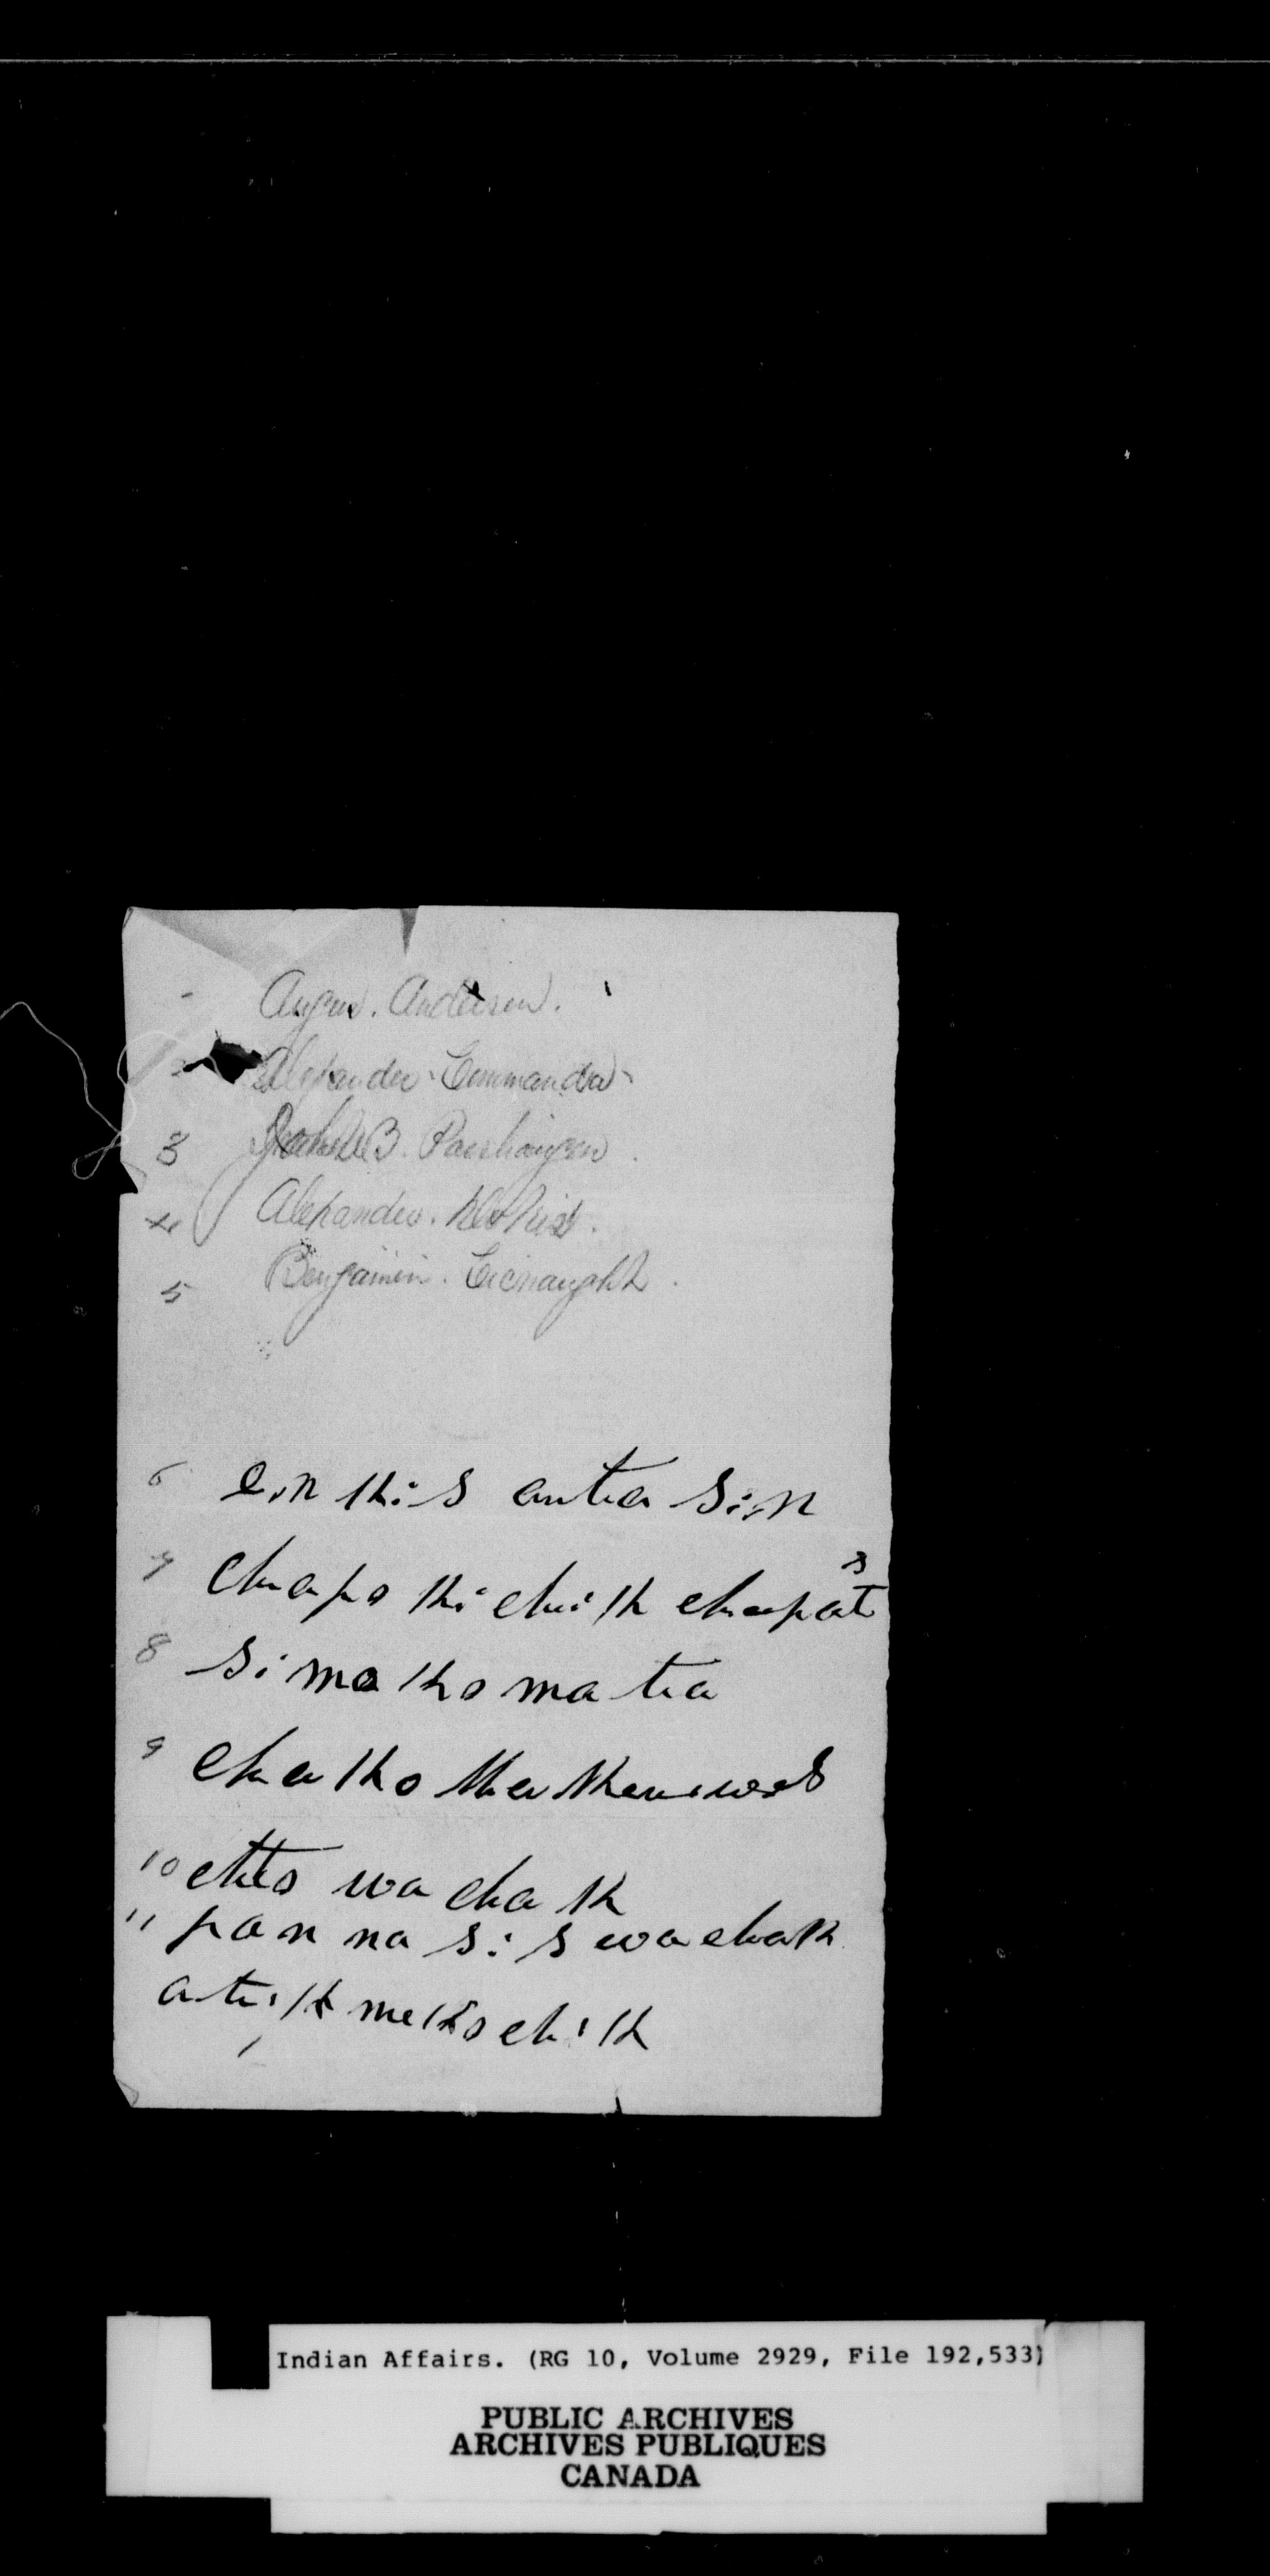 - Angus. Anderson.
2 Alexander Commanda
3 B. Paushaigen.
4 Alexander.
5 Benjamin.
6 en kis anta sin
7 cha po ki chi k cha pat
8 si ma ko ma ta
9 cha ko
10 chto wa cha k
11 pan na si s wa chak
a ti k me ko chi k
Indian Affairs. (RG 10, Volume 2929, File 192,533)
PUBLIC ARCHIVES
ARCHIVES PUBLIQUES
CANADA